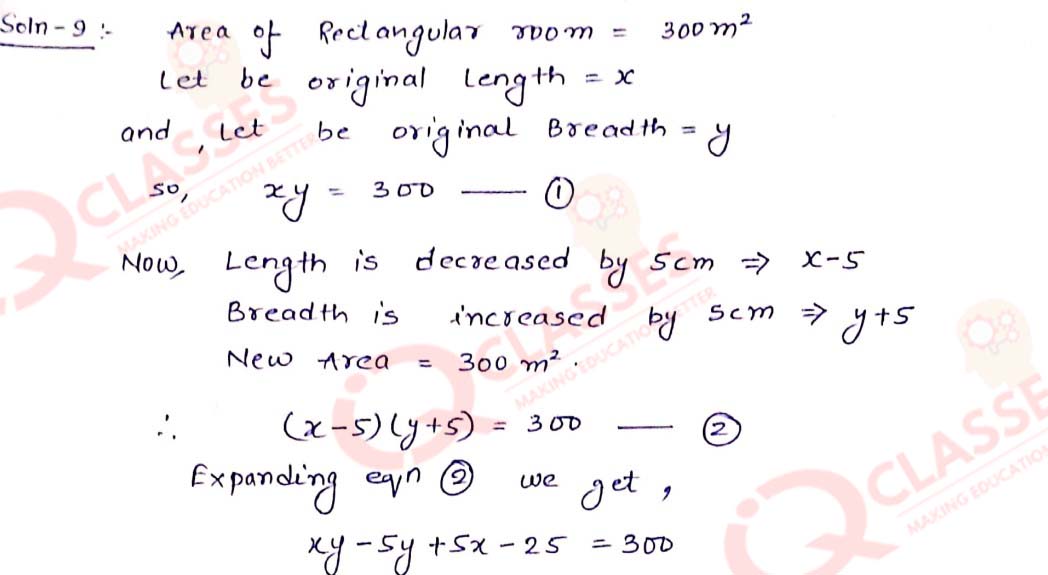 Soln-9:- Area of Rectangular room = 300 m²
Let be original Length = x
and, Let be original Breadth = y
so, xy = 300 —— ①
Now, Length is decreased by 5cm ⇒ x-5
Breadth is increased by 5cm ⇒ y+5
New Area = 300 m².
∴ (x-5)(y+5) = 300 —— ②
Expanding eqn ② we get,
xy -5y +5x -25 = 300
CLASSES
MAKING EDUCATION BETTER
CLASSES
MAKING EDUCATION BETTER
CLASSE
MAKING EDUCATION